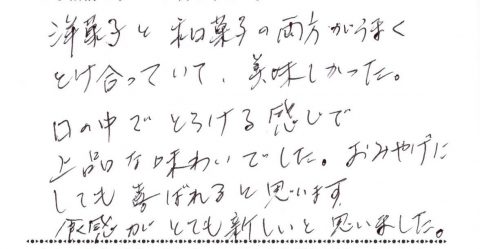 洋菓子と和菓子の両方がうまく
とけ合っていて、美味しかった。
口の中でとろける感じで
上品な味わいでした。おみやげに
しても喜ばれると思います
食感がとても新しいと思いました。